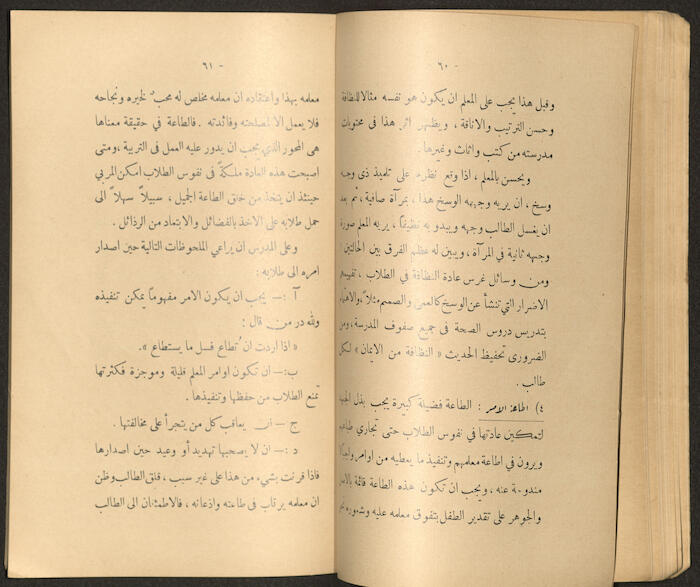 - ٦٠ -
وقبل هذا يجب على المعلم ان يكون هو نفسه مثالا للنظافة
وحسن الترتيب والاناقة ، ويظهر اثر هذا فى محتويات
مدرسته من كتب واثاث وغيرها .
ويحسن بالمعلم ، اذا وقع نظره على تلميذ ذى وجه
وسخ ، ان يريه وجهه الوسخ هذا ، بمرآة صافية ، ثم بعد
ان يغسل الطالب وجهه ويبدو به نظيفاً ، يريه المعلم صورة
وجهه ثانية في المرآة ، ويبين له عظم الفرق بين الحالتين
ومن وسائل غرس عادة النظافة في الطلاب ، تفهيمهم
الاضرار التي تنشأ عن الوسخ كالعمى والصمم مثلاً ، والاهتمام
بتدريس دروس الصحة فى جميع صفوف المدرسة ، ومن
الضرورى تحفيظ الحديث « النظافة من الايمان » لكل
طالب .
٤) اطاعة الامر : الطاعة فضيلة كبيرة يجب بذل الجهد
لتمكين عادتها في نفوس الطلاب حتى تجاري طباعهم
ويرون في اطاعة معلمهم وتنفيذ ما يعطيه من اوامر واجبًا لا
مندوحة عنه ، ويجب ان تكون هذه الطاعة قائمة بالامر
والجوهر على تقدير الطفل بتفوق معلمه عليه وشعوره نحو
- ٦١ -
معلمه بهذا واعتقاده ان معلمه مخلص له محبٌ لخيره ونجاحه
فلا يعمل الا لمصلحته وفائدته . فالطاعة في حقيقة معناها
هى المحور الذي يجب ان يدور عليه العمل فى التربية ، ومتى
اصبحت هذه العادة ملكةً في نفوس الطلاب امكن المربي
حينئذ ان يتخذ من خلق الطاعة الجميل ، سبيلاً سهلاً الى
حمل طلابه على الاخذ بالفضائل والابتعاد من الرذائل .
وعلى المدرس ان يراعي الملحوظات التالية حين اصدار
امره الى طلابه :
آ :— يجب ان يكون الامر مفهوماً يمكن تنفيذه
ولله در من قال :
« اذا اردت ان تُطاع فسل ما يستطاع » .
ب:— ان تكون اوامر المعلم قليلة وموجزة فكثرتها
تمنع الطلاب من حفظها وتنفيذها .
ج — ان يعاقب كل من يتجرأ على مخالفتها .
د :— ان لا يصحبها تهديد أو وعيد حين اصدارها
فاذا قرنت بشيء من هذا على غير سبب ، قلق الطالب وظن
ان معلمه يرتاب في طاعته واذعانه ، فالاطمئنان الى الطالب